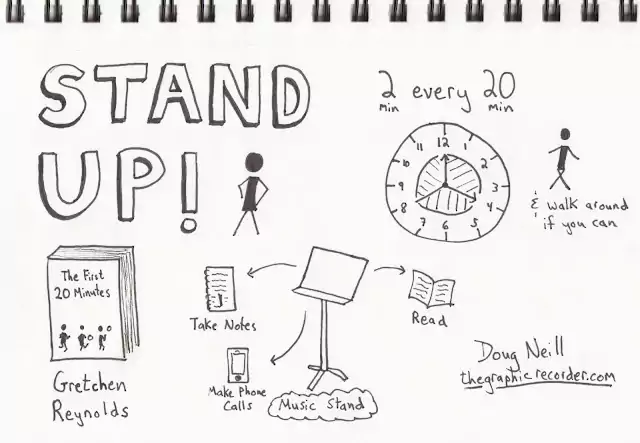 STAND
UP!
2 every 20
min min
12
1
2
3
4
5
6
7
8
9
10
11
& walk around
if you can
The First
20 Minutes
Gretchen
Reynolds
Take Notes
Make Phone
Calls
Music Stand
Read
Doug Neill
thegraphicrecorder.com